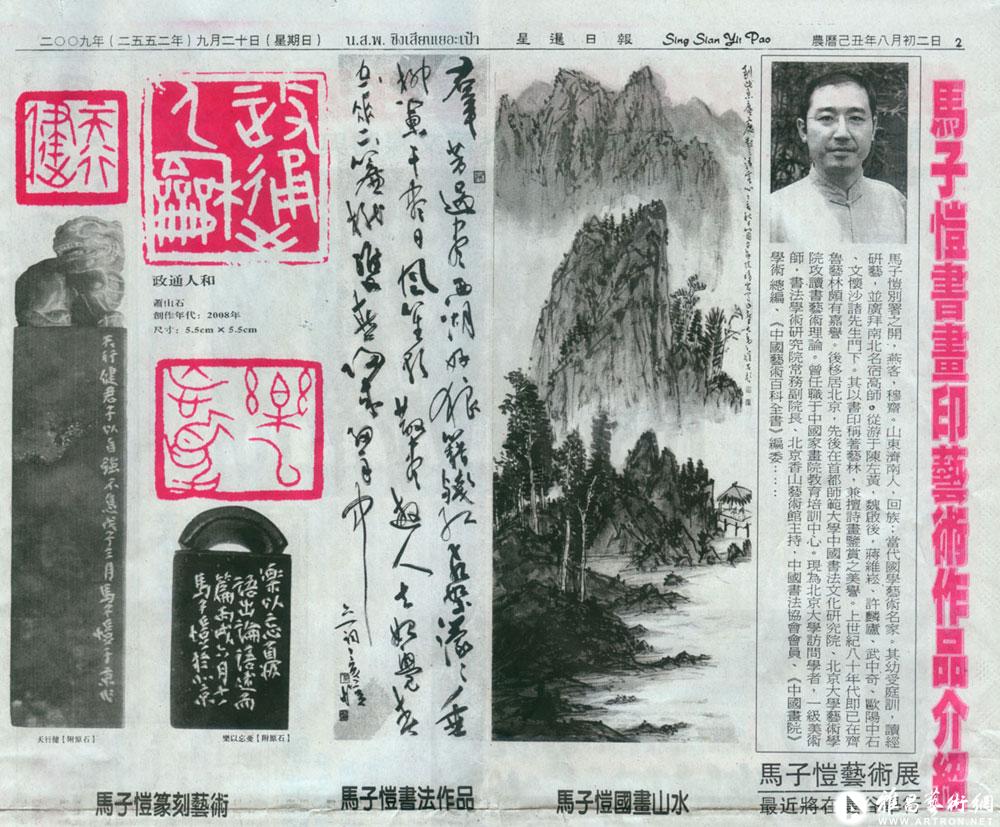 二〇〇九年(二五五二年)九月二十日(星期日)
น.ส.พ. ซิงเสียนเยอะเป้า
星暹日報
Sing Sian Yit Pao
農曆己丑年八月初二日 2
馬子愷書畫印藝術作品介紹
馬子愷別署之開,燕客,穆齋。山東濟南人,回族;當代國學藝術名家。其幼受庭訓,讀經
研藝,並廣拜南北名宿高師。從游于陳左黃,魏啟後,蔣維崧,許麟廬,武中奇、歐陽中石
、文懷沙諸先生門下。其以書印稱著藝林,兼擅詩畫鑒賞之美譽。上世紀八十年代即已在齊
魯藝林頗有嘉譽。後移居北京,先後在首都師範大學中國書法文化研究院、北京大學藝術學
院攻讀書藝術理論。曾任職于中國國家畫院教育培訓中心。現為北京大學訪問學者,一級美術
師,書法學術研究院常務副院長、北京香山藝術館主持,中國書法協會會員、《中國畫院》
學術總編、《中國藝術百科全書》編委⋯⋯
馬子愷藝術展
最近將在
馬子愷國畫山水
群芳過後西湖好狼籍殘紅飛絮濛濛垂
柳闌干盡日風笙歌散盡遊人去始覺春
空垂下簾櫳雙燕歸來細雨中
馬子愷書法作品
政通人和
天行健
政通人和
蕭山石
創作年代:2008年
尺寸:5.5cm×5.5cm
樂以忘憂
天行健君子以自強不息戊子三月馬子愷于京
樂以忘憂
語出論語述而
篇丙戌六月十六
馬子愷於京
天行健【附原石】
樂以忘憂【附原石】
馬子愷篆刻藝術
雅昌藝術網
WWW.ARTRON.NET